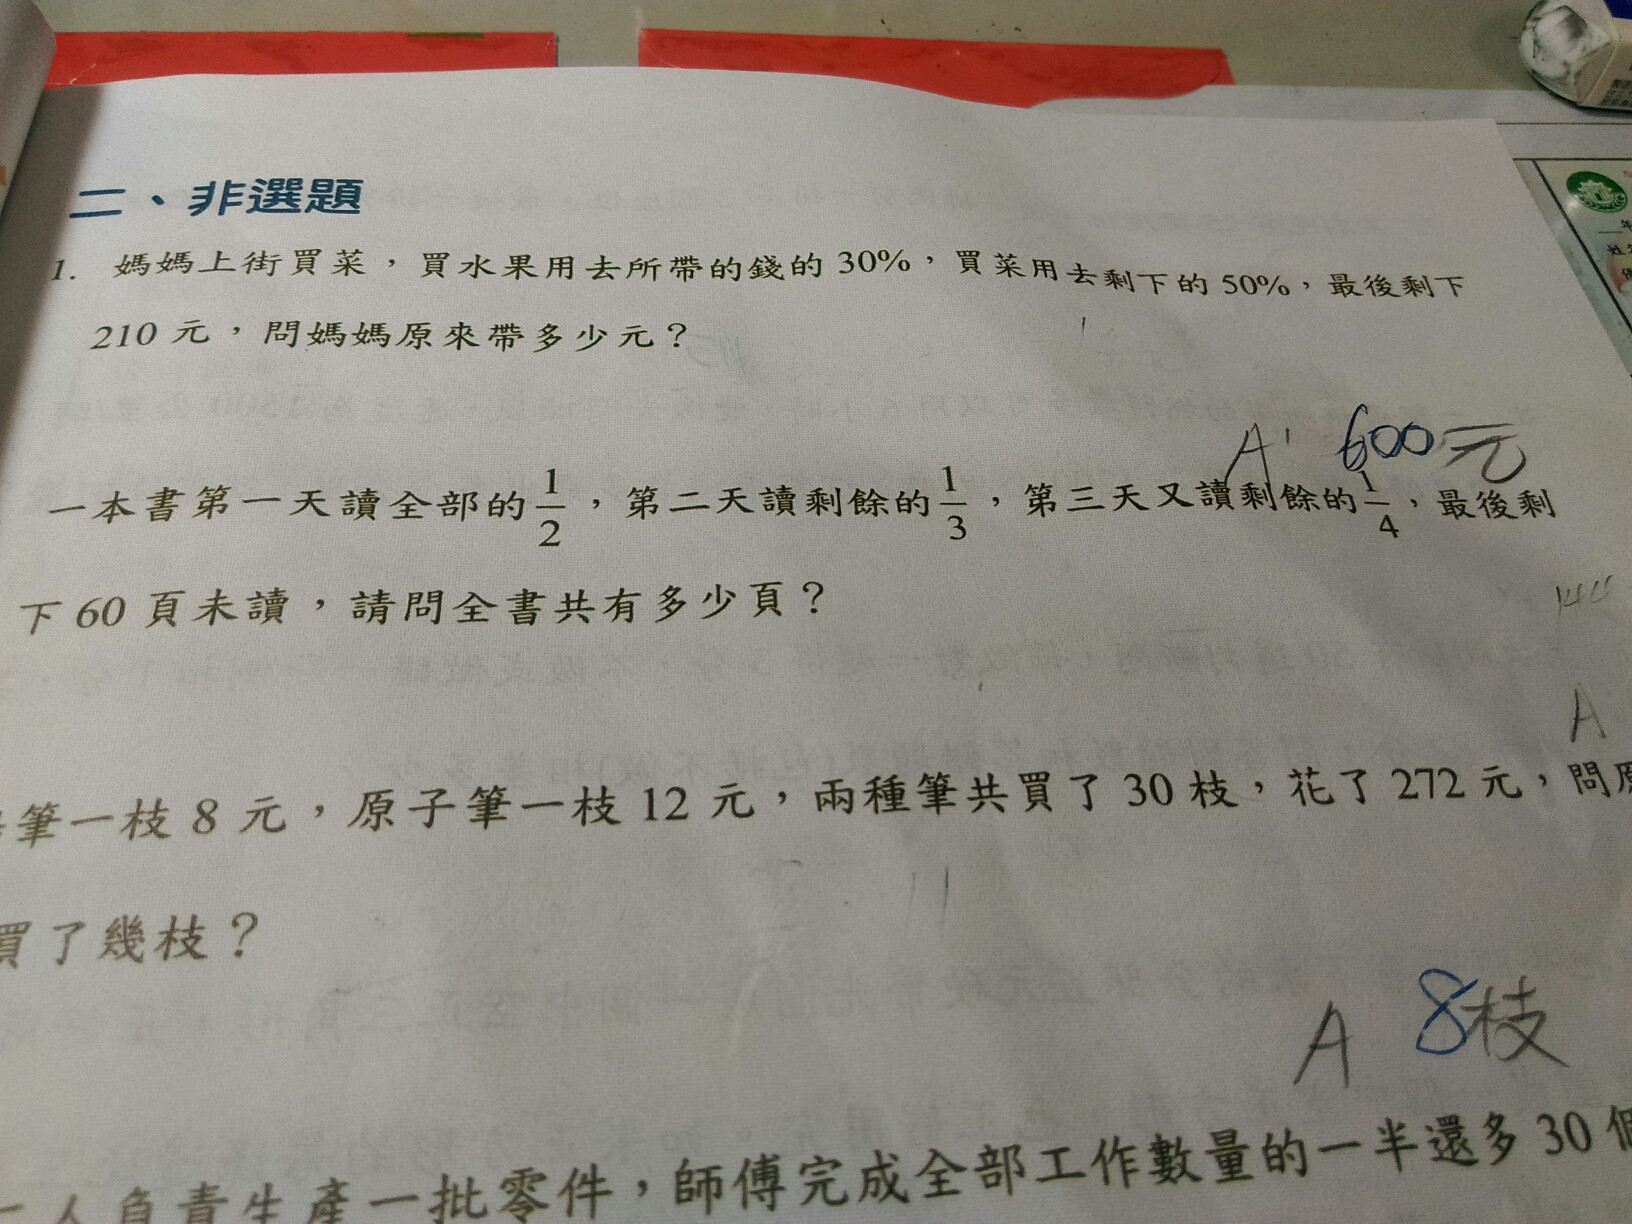 二、非選題
1. 媽媽上街買菜，買水果用去所帶的錢的 30%，買菜用去剩下的 50%，最後剩下
210 元，問媽媽原來帶多少元？
A 600元
一本書第一天讀全部的 1/2，第二天讀剩餘的 1/3，第三天又讀剩餘的 1/4，最後剩
下 60 頁未讀，請問全書共有多少頁？
A
筆一枝 8 元，原子筆一枝 12 元，兩種筆共買了 30 枝，花了 272 元，問原
買了幾枝？
A 8枝
二人負責生產一批零件，師傅完成全部工作數量的一半還多 30 個